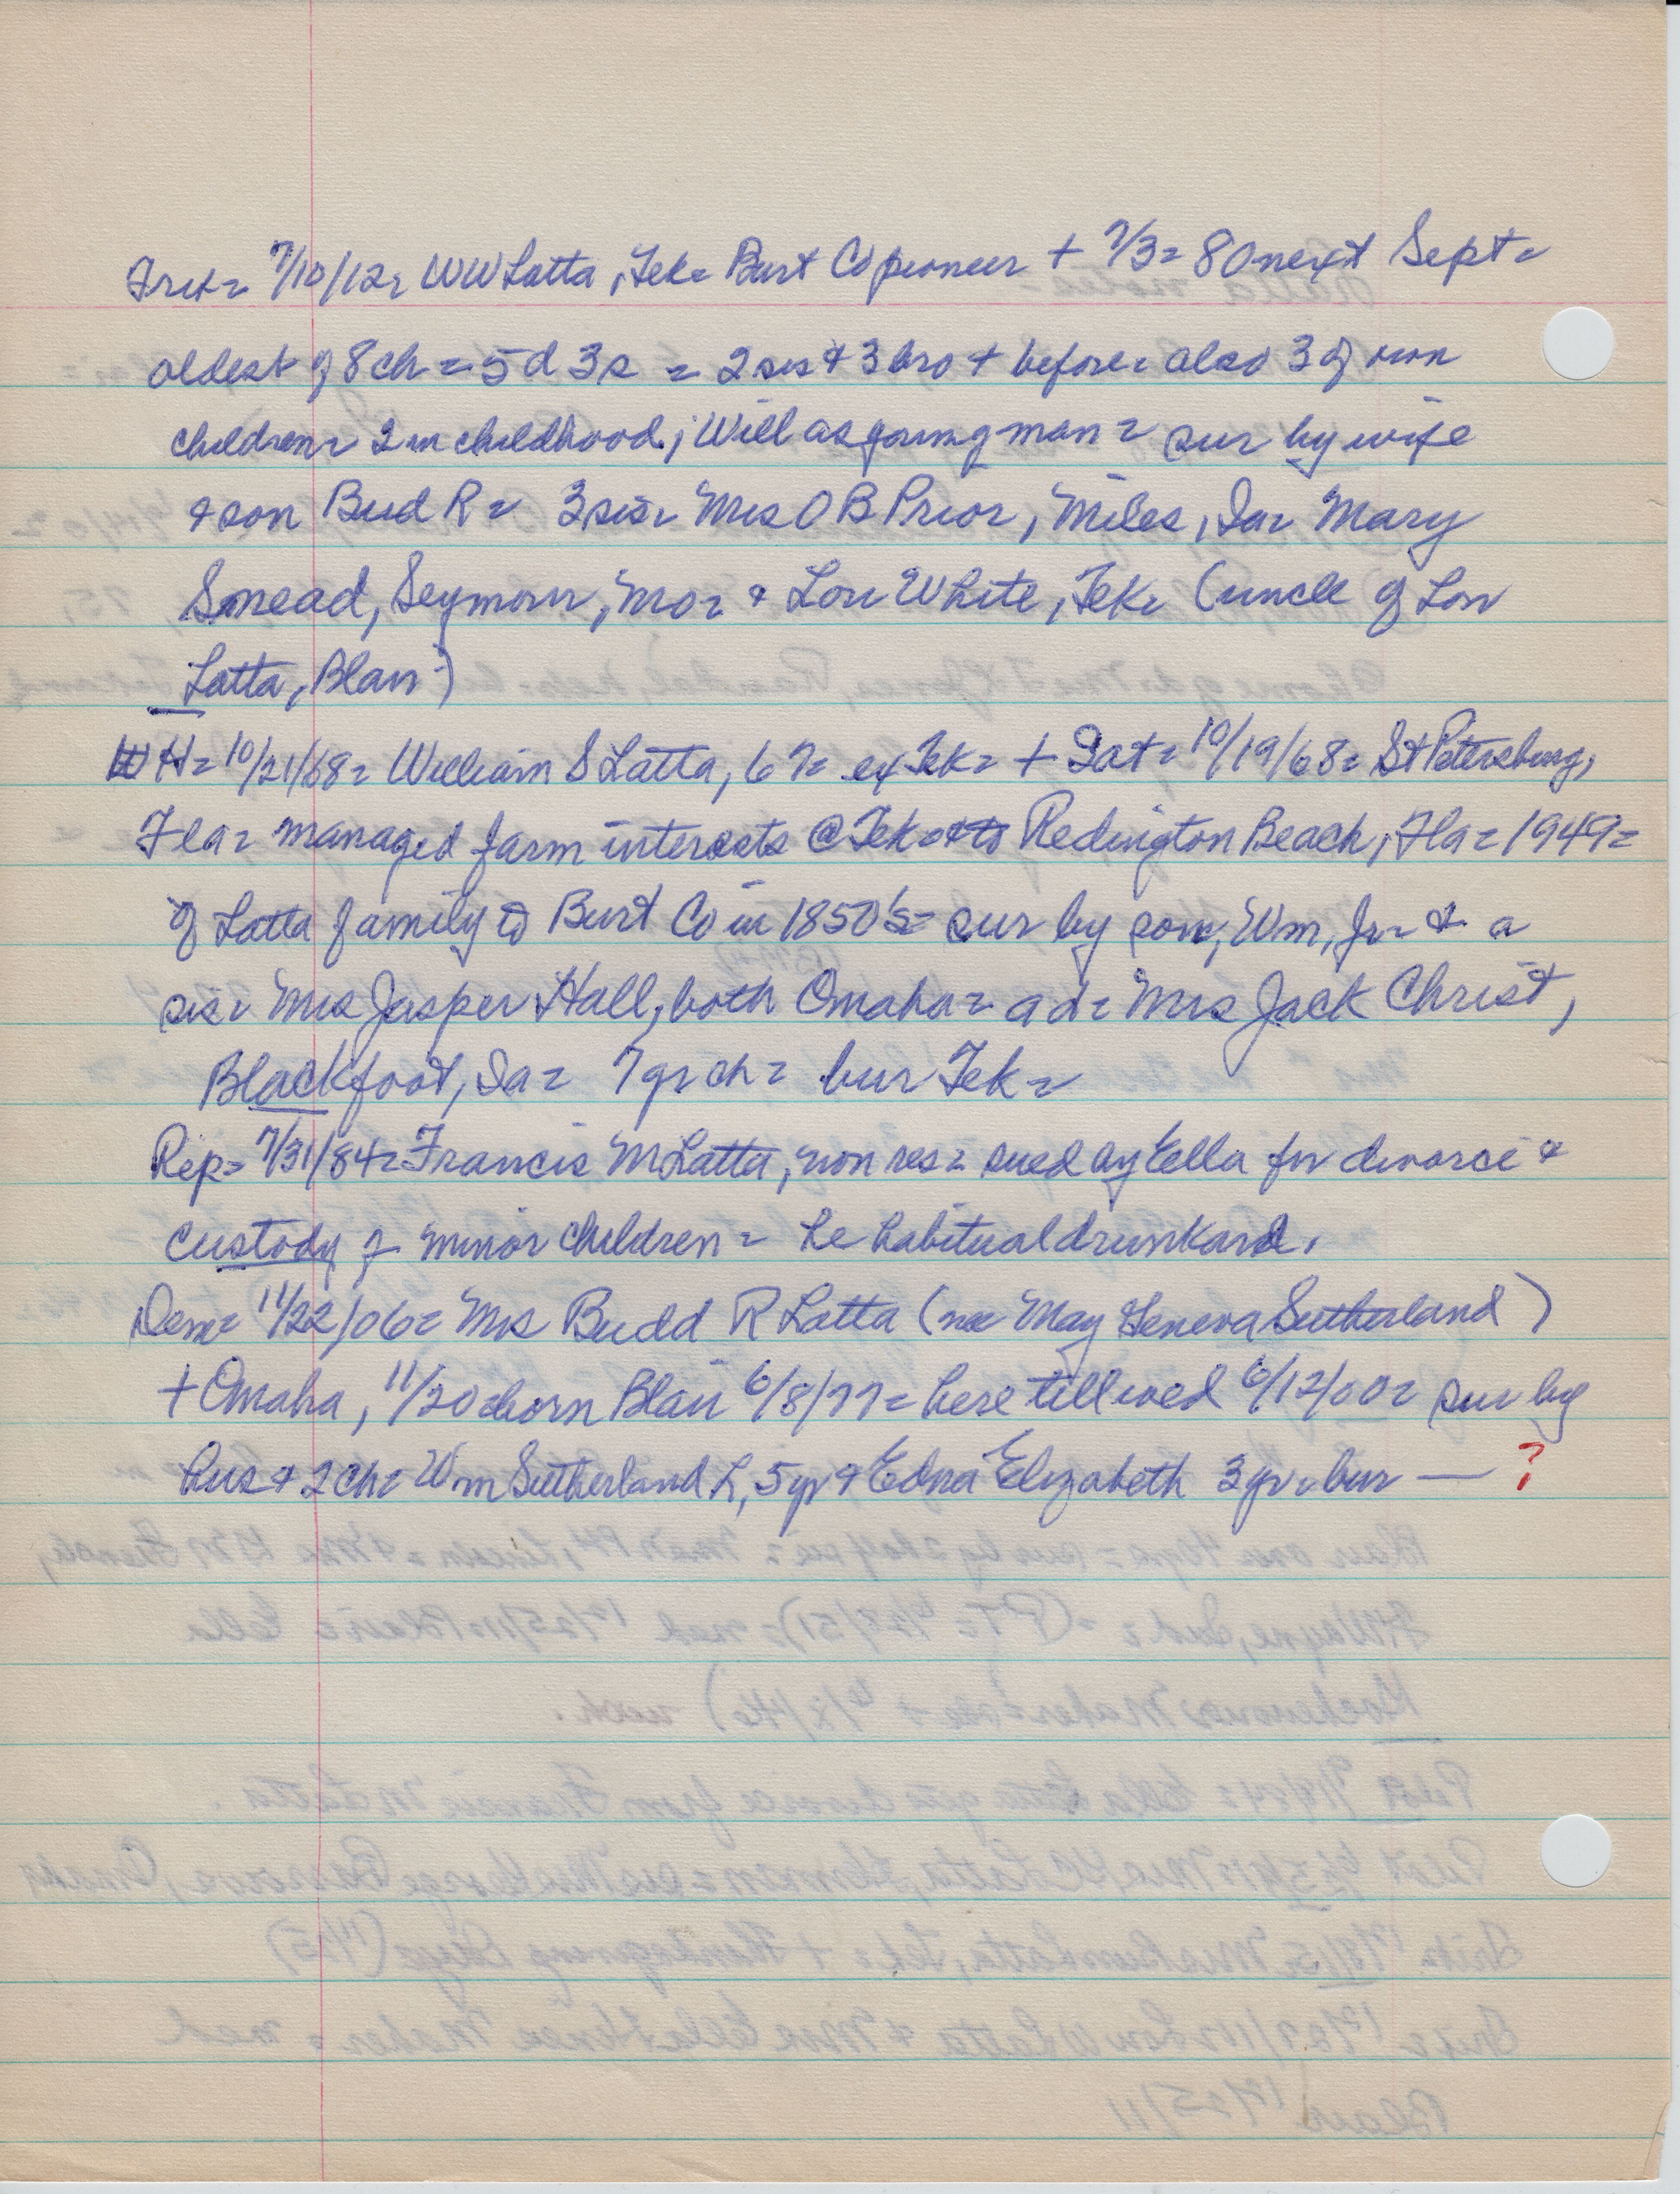 Trib= 7/10/12= WW Latta, Tek= Burt Co pioneer + 7/3= 80 next Sept=
oldest of 8 ch = 5 d 3 s = 2 sis & 3 bro + before= also 3 of own
children= 2 in childhood; Will as young man = sur by wife
& son Bud R= 3 sis= Mrs O B Prior, Miles, Ia= Mary
Smead, Seymour, Mo= & Lou White, Tek= (uncle of Lon
Latta, Blair)
WH= 10/21/68= William S Latta, 67= ex Tek= + Sat= 10/19/68= St Petersburg,
Fla= managed farm interests @ Tek= & to Redington Beach, Fla= 1949=
of Latta family to Burt Co in 1850's= sur by son, Wm, Jr= & a
sis= Mrs Jasper Hall, both Omaha= a d= Mrs Jack Christ,
Blackfoot, Ia= 7 gr ch= bur Tek=
Rep= 7/31/84= Francis M Latta, non res= sued by Ella for divorce &
custody of minor children= he habitual drunkard.
Dem= 11/22/06= Mrs Budd R Latta (nee May Geneva Sutherland)
+ Omaha, 11/20= born Blair 6/8/77= here till wed 6/12/00= sur by
hus & 2 ch= Wm Sutherland L, 5 yr & Edna Elizabeth 3 yr= bur — ?